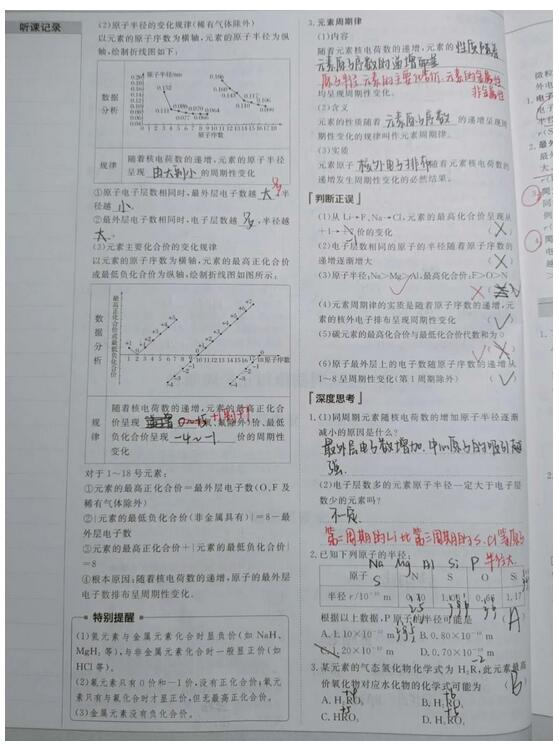 听课记录
(2)原子半径的变化规律(稀有气体除外)
以元素的原子序数为横轴,元素的原子半径为纵
轴,绘制折线图如下:
数据
分析
原子半径/nm
0.152
0.111
0.088
0.077
0.070
0.064
0.186
0.160
0.143
0.117
0.110
0.099
1 2 3 4 5 6 7 8 9 10 11 12 13 14 15 16 17 18
原子序数
规律
随着核电荷数的递增,元素的原子半径
呈现 由大到小 的周期性变化
①原子电子层数相同时,最外层电子数越 大多 半
径越 小
②最外层电子数相同时,电子层数越 多,半径越
大。
(3)元素主要化合价的变化规律
以元素的原子序数为横轴,元素的最高正化合价
或最低负化合价为纵轴,绘制折线图如图所示:
数
据
分
析
最高正化合价或最低负化合价
原子序数
规
律
随着核电荷数的递增,元素的最高正化合
价呈现 +1到+7 氧、氟除外)价、最低
负化合价呈现 -4~-1 价的周期性
变化
对于1~18号元素:
①元素的最高正化合价=最外层电子数(O、F及
稀有气体除外)
②|元素的最低负化合价(非金属具有)|=8-最
外层电子数
③元素的最高正化合价+|元素的最低负化合价|
=8
④根本原因:随着核电荷数的递增,原子的最外层
电子数排布呈现周期性变化。
特别提醒
(1)氢元素与金属元素化合时显负价(如 NaH、
MgH₂ 等),与非金属元素化合时一般显正价(如
HCl 等)。
(2)氟元素只有0价和-1价,没有正化合价;氧元
素只有与氟化合时才显正价,但无最高正化合价。
(3)金属元素没有负化合价。
3.元素周期律
(1)内容
随着元素核电荷数的递增,元素的 性质随着
元素原子序数的递增而呈
原子半径、元素的主要化合价、元素的金属性
非金属性
均呈现周期性变化。
(2)含义
元素的性质随着 元素原子序数 的递增呈现周
期性变化的规律叫作元素周期律。
(3)实质
元素原子 核外电子排布 随着元素核电荷数的
递增发生周期性变化的必然结果。
「判断正误」
(1)从 Li→F、Na→Cl,元素的最高化合价呈现从
+1→ 价的变化 ( X )
(2)电子层数相同的原子的半径随着原子序数的
递增逐渐增大 ( X )
(3)原子半径:Na>Mg>Al,最高化合价:F>O>N
(4)元素周期律的实质是随着原子序数的递增,元
素的核外电子排布呈现周期性变化 ( √ )
(5)碳元素的最高化合价与最低化合价代数和为0
(6)原子最外层上的电子数随原子序数的递增从
1~8呈周期性变化(第1周期除外) ( √ )
「深度思考」
1.(1)同周期元素随核电荷数的增加原子半径逐渐
减小的原因是什么?
最外层电子数增加,中心原子的吸引越
强.
(2)电子层数多的元素原子半径一定大于电子层
数少的元素吗?
不一定.
第二周期的Li比第三周期的S、Cl等原子
半径大.
2.已知下列原子的半径:
Na Mg Al Si P
原子 N S O Si
半径 r/10⁻¹⁰ m 0.70 1.10 0.66 1.17
根据以上数据,P 原子的半径可能是 ( A )
A.1.10×10⁻¹⁰ m B.0.80×10⁻¹⁰ m
C.1.20×10⁻¹⁰ m D.0.70×10⁻¹⁰ m
3.某元素的气态氢化物化学式为 H₂R,此元素最高
价氧化物对应水化物的化学式可能为 ( B )
A.H₂RO₃ B.H₂RO₄
C.HRO₃ D.H₃RO₄